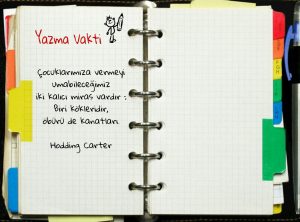 Yazma Vakti
Çocuklarımıza vermeyi
umabileceğimiz
iki kalıcı miras vardır :
Biri kökleridir,
öbürü de kanatları.
Hodding Carter